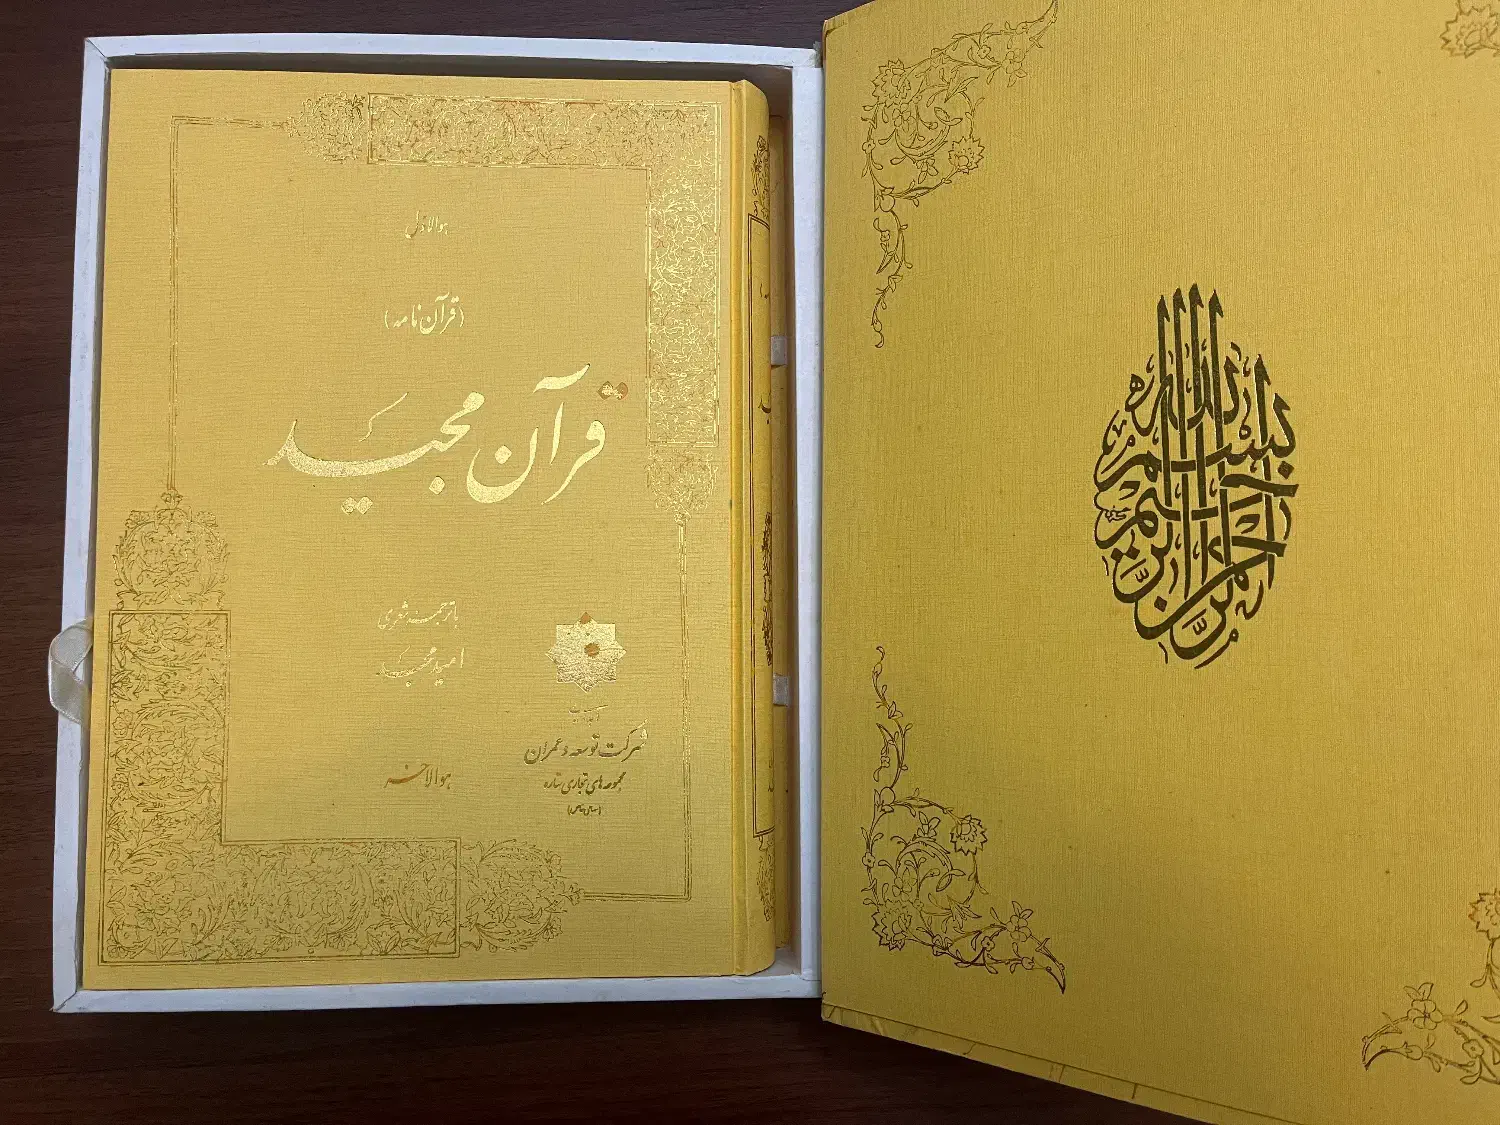 هوالاول
(قرآن نامه)
قرآن مجید
با ترجمه شعری
امید مجد
هوالاخر
شرکت توسعه و عمران
مجموعه های تجاری ستاره
(سهامی خاص)
بسم الله الرحمن الرحیم